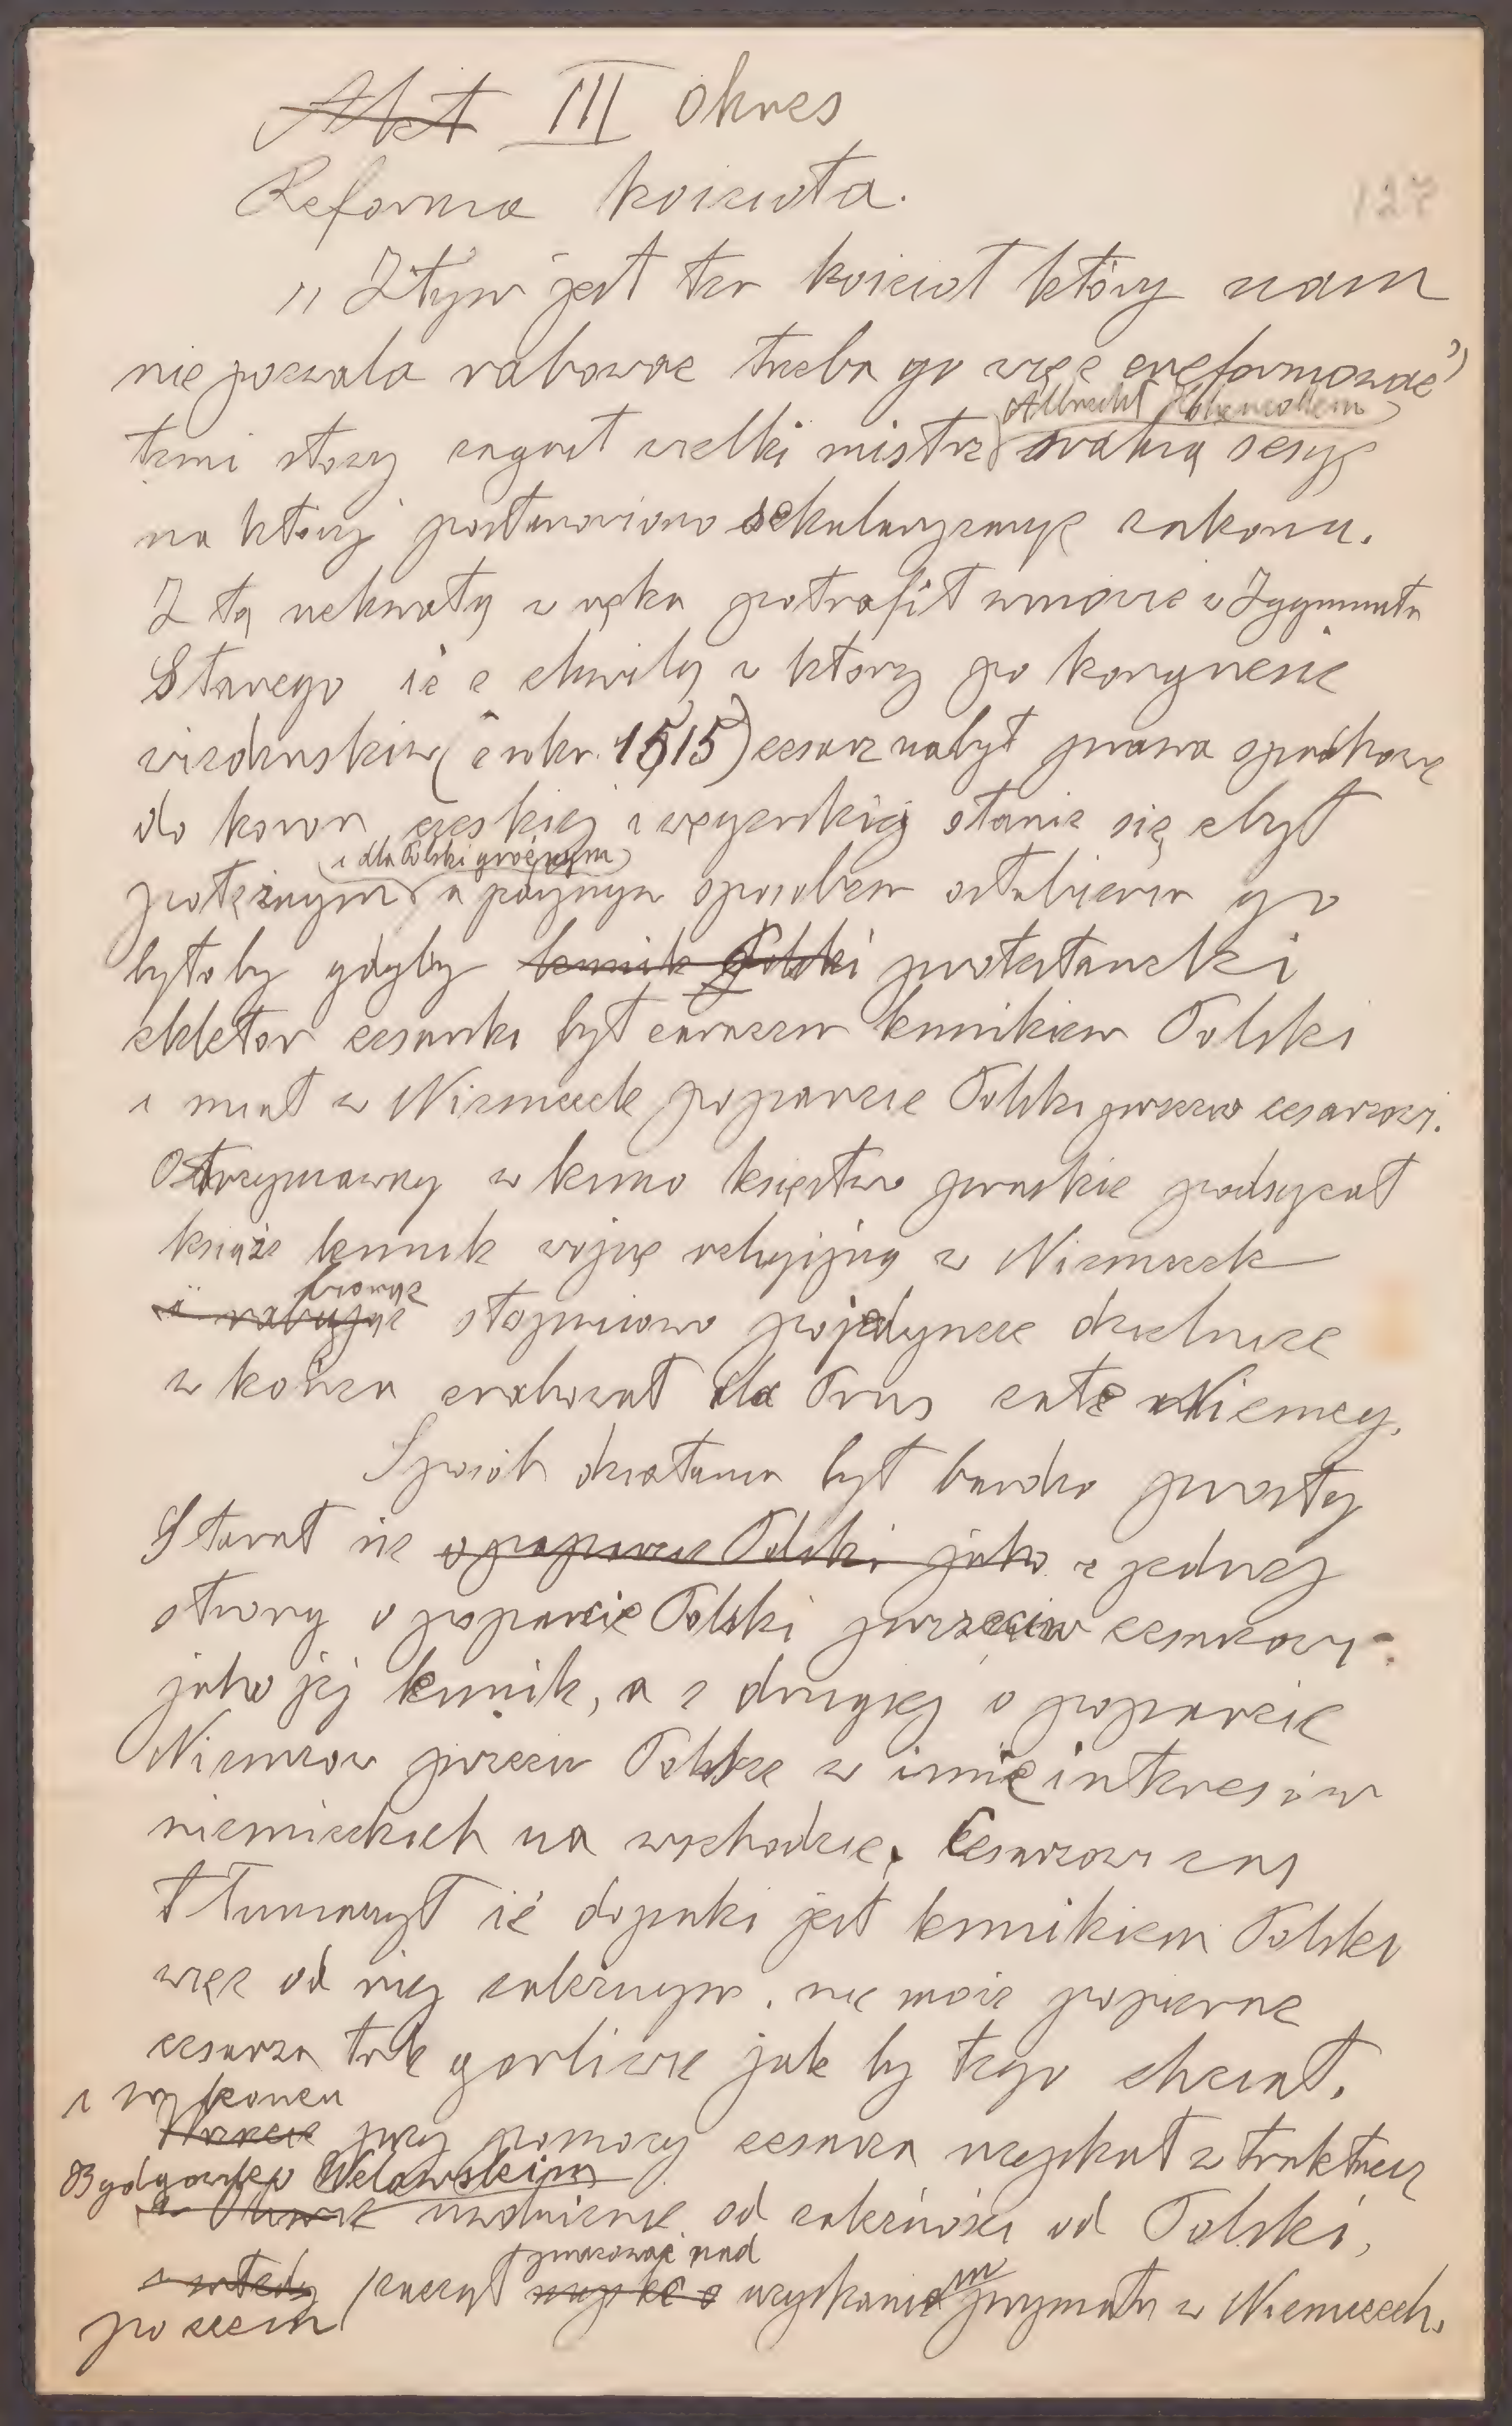 Akt III Okres
Reforma kościoła.
127
„Złym jest ten kościoł który nam
nie pozwala rabować trzeba go więc zreformować”
Albrecht Hohenzollern
temi słowy zagaił wielki mistrz ważną sesyę
na ktorej postanowiono sekularyzacyę zakonu.
Z tą uchwałą w ręku potrafił wmowić w Zygmunta
Starego iż z chwilą w ktorej po kongresie
wiedeńskim (z roku 1515) cesarz nabył prawa spadkowe
do koron czeskiej i węgierskiej stanie się zbyt
i dla Polski groźnym
potężnym a jedynym sposobem osłabienia go
byłoby gdyby lennik Polski protestancki
elektor cesarski był zarazem lennikiem Polski
i miał w Niemczech poparcie Polski przeciw cesarzowi.
Otrzymawszy w lenno księstwo pruskie podsycał
książe lennik wojnę religijną w Niemczech
biorąc
i rabując stopniowo pojedyncze dzielnice
w końcu zrabował dla Prus całe Niemcy.
Sposób działania był bardzo prosty
Starał się o poparcie Polski jako z jednej
strony o poparcie Polski przeciw cesarzowi
jako jej lennik, a z drugiej o poparcie
Niemcow przeciw Polsce w imię interesów
niemieckich na wschodzie. Cesarzowi zaś
tłumaczył iż dopoki jest lennikiem Polski
więc od niej zależnym, nie może popierać
cesarza tak gorliwie jak by tego chciał.
i w końcu
Wreszcie przy pomocy cesarza uzyskał w traktacie
Bydgowsko Welawskim
w Oliwie uwolnienie od zależności od Polski,
pracować nad
i wtedy zaczął uzyskaniem prymatu w Niemczech.
poczem